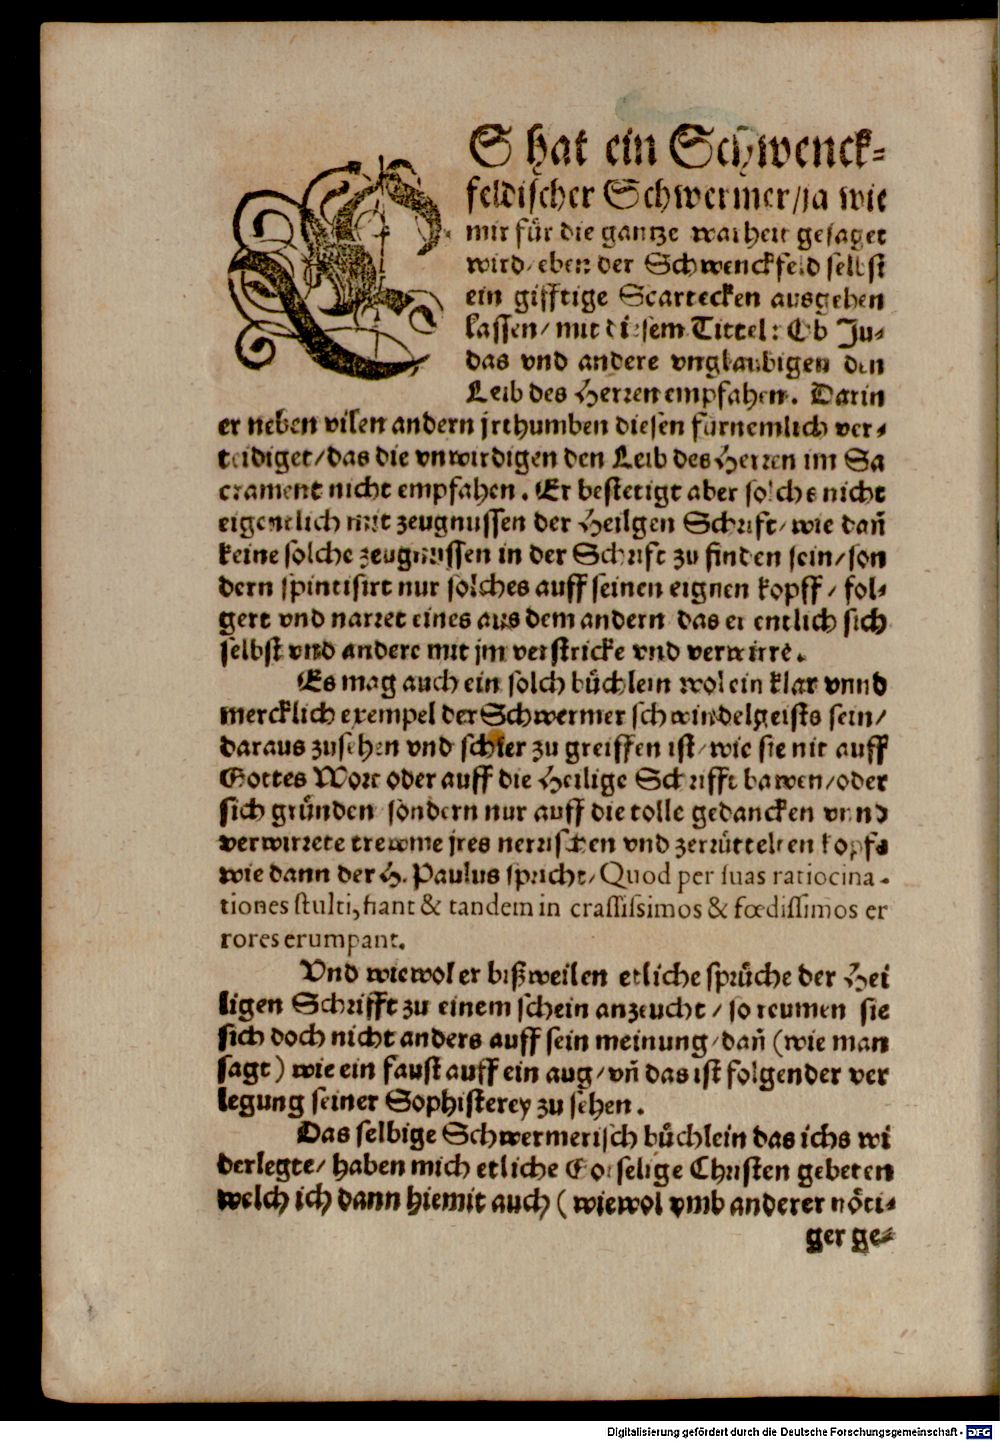 ES hat ein Schwenck-
feldischer Schwermer/ja wie
mir für die gantze warheit gesaget
wird/eben der Schwenckfeld selbst
ein gifftige Scartecken ausgehen
lassen/mit diesem Tittel: Ob Ju-
das vnd andere vnglaubigen den
Leib des Herren empfahen. Darin
er neben vilen andern jrthumben diesen fürnemlich ver-
teidiget/das die vnwirdigen den Leib des Herren im Sa
crament nicht empfahen. Er bestetigt aber solchs nicht
eigentlich mit zeugnussen der Heilgen Schrift/wie dañ
keine solche zeugnussen in der Schrift zu finden sein/son
dern spintisirt nur solches auff seinen eignen kopff/fol-
gert vnd narret eines aus dem andern das er entlich sich
selbst vnd andere mit jm verstricke vnd verwirrē.
Es mag auch ein solch büchlein wol ein klar vnnd
mercklich exempel der Schwermer schwindelgeists sein/
daraus zusehen vnd schier zu greiffen ist/wie sie nit auff
Gottes Wort oder auff die Heilige Schrifft bawen/oder
sich gründen sondern nur auff die tolle gedancken vnnd
verwirrete trewme jres nerrischen vnd zerrüttelten kopfs
wie dann der H. Paulus spricht/Quod per suas ratiocina-
tiones stulti, fiant & tandem in crassissimos & fœdissimos er
rores erumpant.
Vnd wiewol er bißweilen etliche sprüche der Hei
ligen Schrifft zu einem schein anzeucht/so reumen sie
sich doch nicht anders auff sein meinung/dañ (wie man
sagt) wie ein faust auff ein aug/vñ das ist folgender ver
legung seiner Sophisterey zu sehen.
Das selbige Schwermerisch büchlein das ichs wi
derlegte/haben mich etliche Gotselige Christen gebeten
welch ich dann hiemit auch (wiewol vmb anderer nöti-
ger ge-
Digitalisierung gefördert durch die Deutsche Forschungsgemeinschaft - DFG